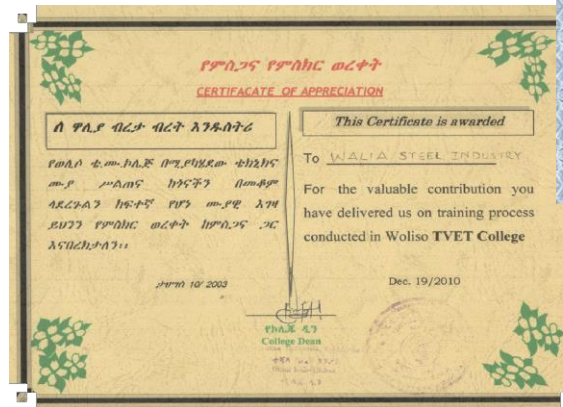 የምስጋና የምስክር ወረቀት
CERTIFACATE OF APPRECIATION
ለ ዋሊያ ብረታ ብረት እንዱስትሪ
የወሊሶ ቴ.ሙ.ኮሌጅ በሚያካሂደው ቴክኒክና
ሙያ ሥልጠና ከጎናችን በመቆም
ላደረጉልን ከፍተኛ የሆነ ሙያዊ እገዛ
ይህንን የምስክር ወረቀት ከምስጋና ጋር
እናበረክታለን፡፡
ታህሣሥ 10/ 2003
This Certificate is awarded
To WALIA STEEL INDUSTRY
For the valuable contribution you
have delivered us on training process
conducted in Woliso TVET College
Dec. 19/2010
የኮሌጁ ዲን
College Dean